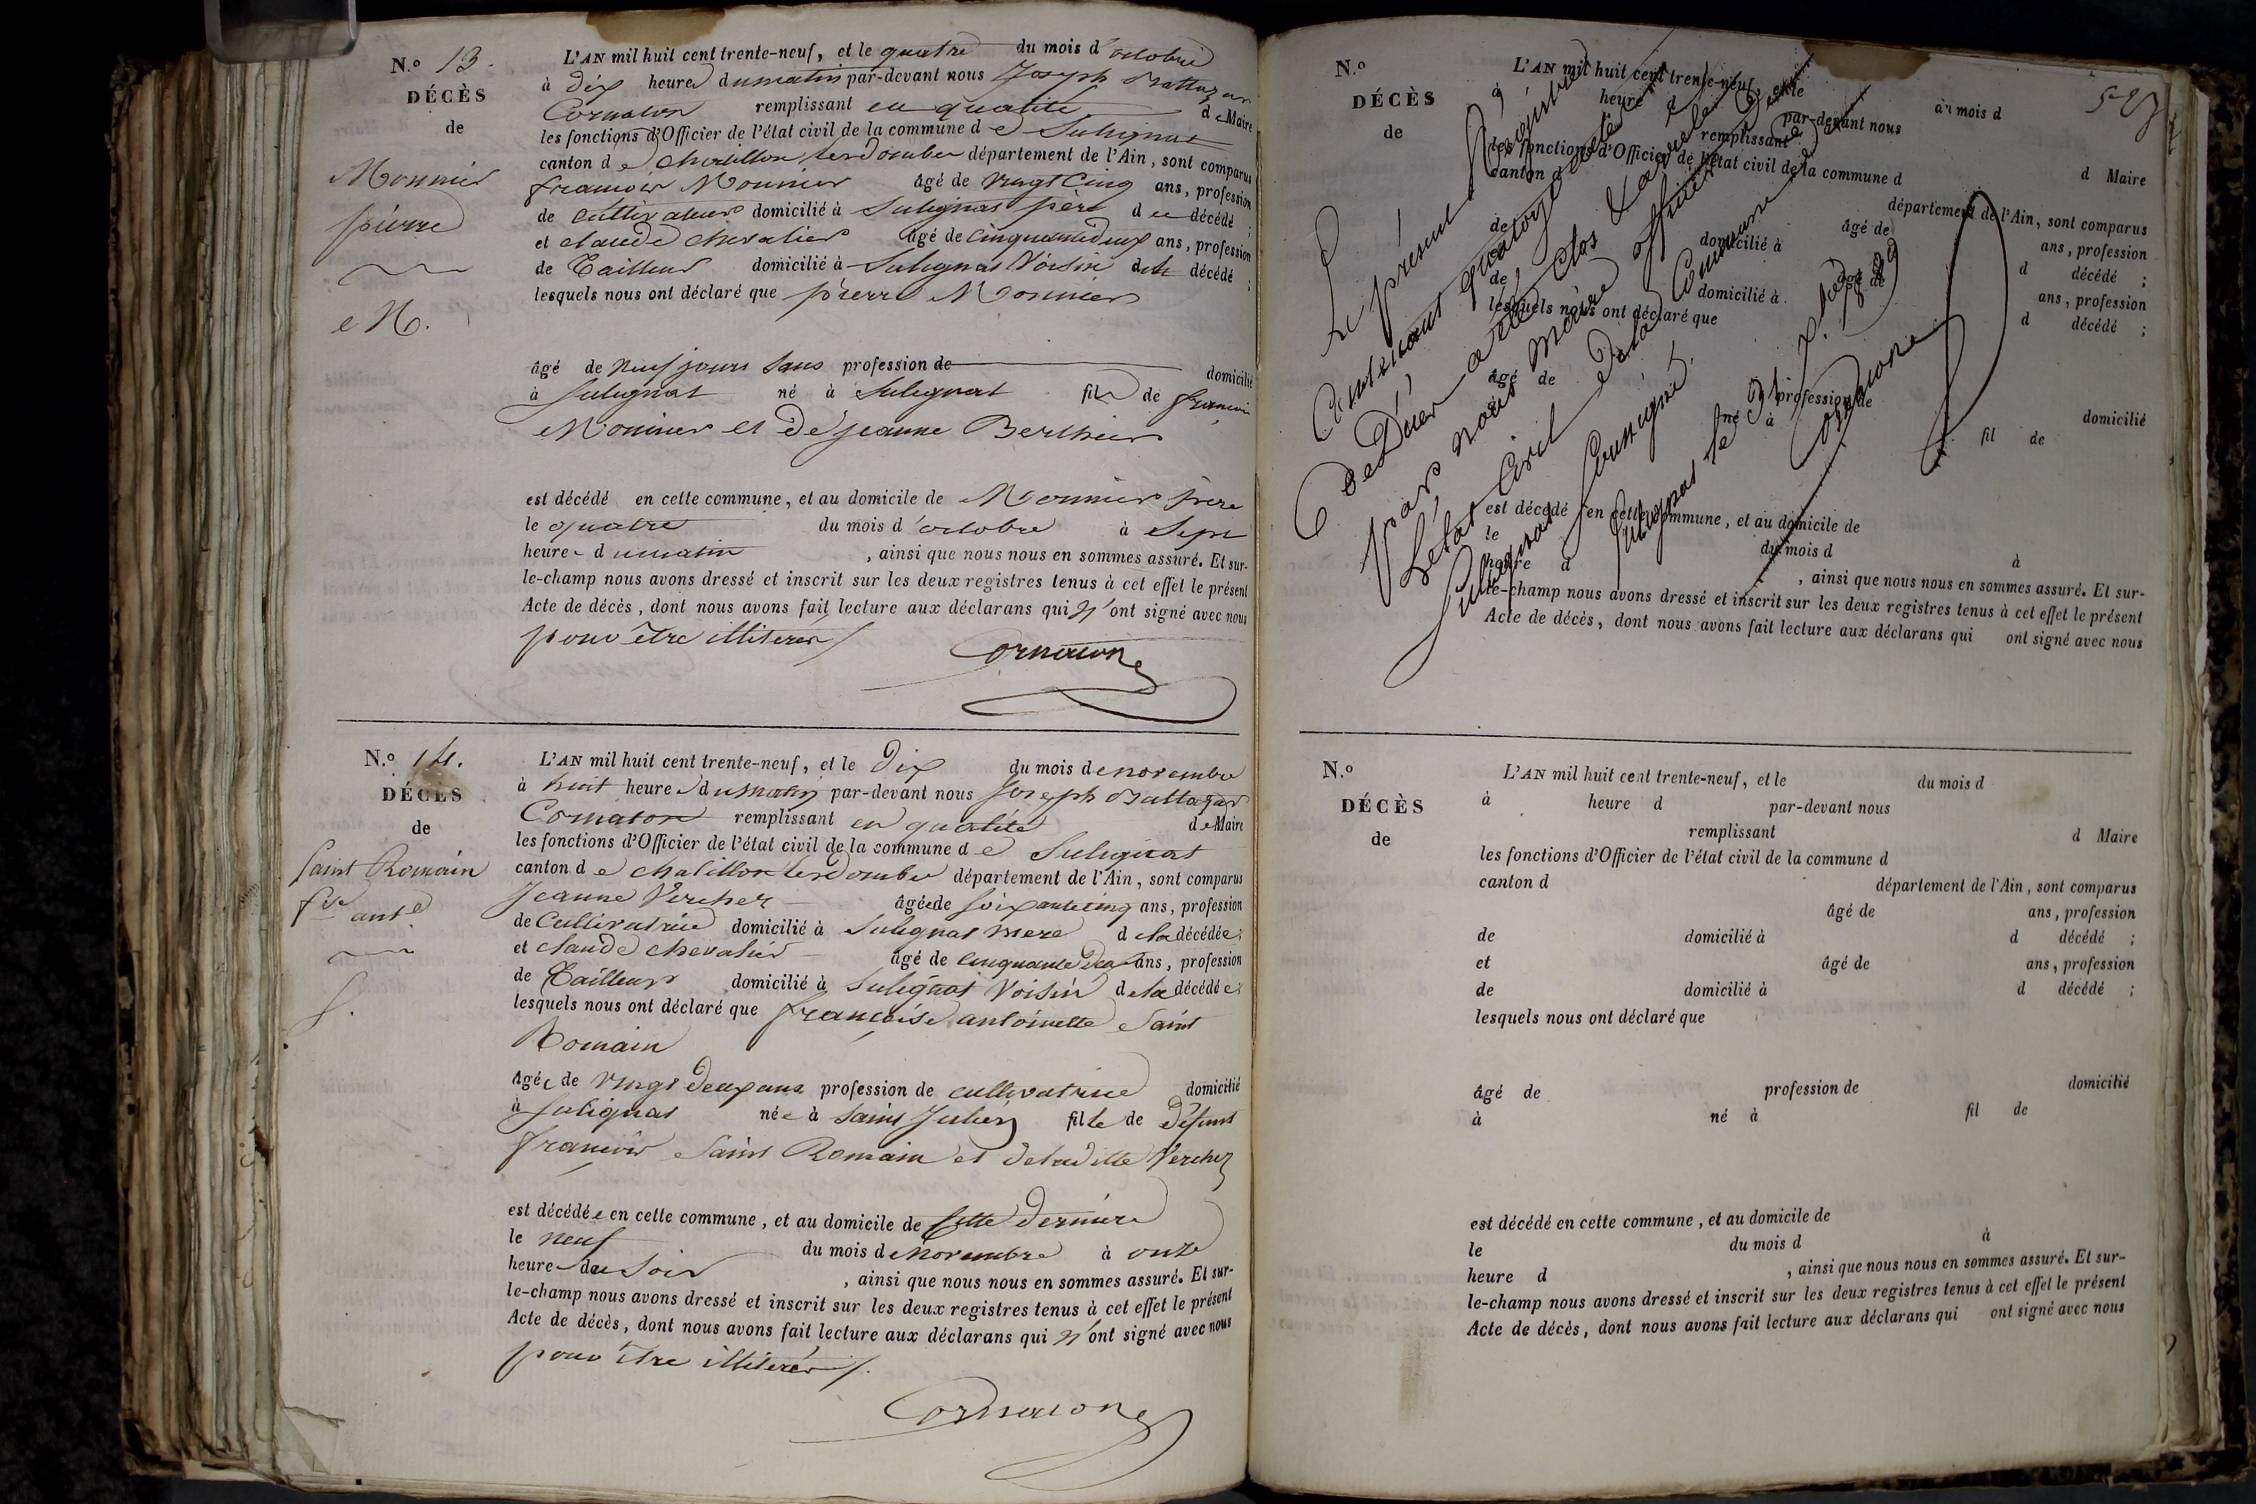 N.o 13.
DÉCÈS
de
Monnier
pierre
N.
L'AN mil huit cent trente-neuf, et le quatre du mois d'octobre
à dix heures du matin par-devant nous Joseph Baltazar
Cornaton remplissant en qualité de Maire
les fonctions d'Officier de l'état civil de la commune de Sulignat
canton de chatillon lesdombes département de l'Ain, sont comparus
francois Monnier âgé de vingt cinq ans, profession
de cultivateur domicilié à Sulignat père du décédé ;
et claude chevalier âgé de cinquante deux ans, profession
de Tailleur domicilié à Sulignat Voisin du décédé ;
lesquels nous ont déclaré que pierre Monnier
âgé de neuf jours sans profession de domicilié
à Sulignat né à Sulignat fils de francois
Monnier et de jeanne Berthier
est décédé en cette commune, et au domicile de Monnier père
le quatre du mois d'octobre à Sept
heures du matin, ainsi que nous nous en sommes assuré. Et sur-
le-champ nous avons dressé et inscrit sur les deux registres tenus à cet effet le présent
Acte de décès, dont nous avons fait lecture aux déclarans qui n'ont signé avec nous
pour être illiterés
Cornaton
N.o 14.
DÉCÈS
de
Saint Romain
fse ante
f.
L'AN mil huit cent trente-neuf, et le dix du mois de novembre
à huit heures du matin par-devant nous Joseph Baltazar
Cornaton remplissant en qualité de Maire
les fonctions d'Officier de l'état civil de la commune de Sulignat
canton de chatillon lesdombes département de l'Ain, sont comparus
Jeanne Vercher âgée de soixante cinq ans, profession
de Cultivatrice domicilié à Sulignat mere de la décédée ;
et claude chevalier âgé de cinquante deux ans, profession
de Tailleur domicilié à Sulignat Voisin de la décédée ;
lesquels nous ont déclaré que francoise antoinette Saint
Romain
âgée de vingt deux ans profession de cultivatrice domicilié
à Sulignat née à Saint Julien fille de Défunt
francois Saint Romain et de ladite Vercher
est décédée en cette commune, et au domicile de cette dernière
le neuf du mois de novembre à onze
heures du soir, ainsi que nous nous en sommes assuré. Et sur-
le-champ nous avons dressé et inscrit sur les deux registres tenus à cet effet le présent
Acte de décès, dont nous avons fait lecture aux déclarans qui n'ont signé avec nous
pour être illiterés
Cornaton
N.o
DÉCÈS
de
L'AN mil huit cent trente-neuf, et le du mois d
à heure d par-devant nous
remplissant d Maire
les fonctions d'Officier de l'état civil de la commune d
canton d département de l'Ain, sont comparus
âgé de ans, profession
de domicilié à d décédé ;
âgé de ans, profession
de domicilié à d décédé ;
lesquels nous ont déclaré que
âgé de profession de domicilié
né à fil de
est décédé en cette commune, et au domicile de
le du mois d à
heure d , ainsi que nous nous en sommes assuré. Et sur-
le-champ nous avons dressé et inscrit sur les deux registres tenus à cet effet le présent
Acte de décès, dont nous avons fait lecture aux déclarans qui ont signé avec nous
Le présent Registre
Contenant quatorze actes
De Décès a été Clos &
par nous Maire officier de
L'état Civil de la Commune de
Sulignat Soussigné.
Sulignat le 31 Xbre 1839
Cornaton
N.o
DÉCÈS
de
L'AN mil huit cent trente-neuf, et le du mois d
à heure d par-devant nous
remplissant d Maire
les fonctions d'Officier de l'état civil de la commune d
canton d département de l'Ain, sont comparus
âgé de ans, profession
de domicilié à d décédé ;
et âgé de ans, profession
de domicilié à d décédé ;
lesquels nous ont déclaré que
âgé de profession de domicilié
à né à fil de
est décédé en cette commune, et au domicile de
le du mois d à
heure d , ainsi que nous nous en sommes assuré. Et sur-
le-champ nous avons dressé et inscrit sur les deux registres tenus à cet effet le présent
Acte de décès, dont nous avons fait lecture aux déclarans qui ont signé avec nous